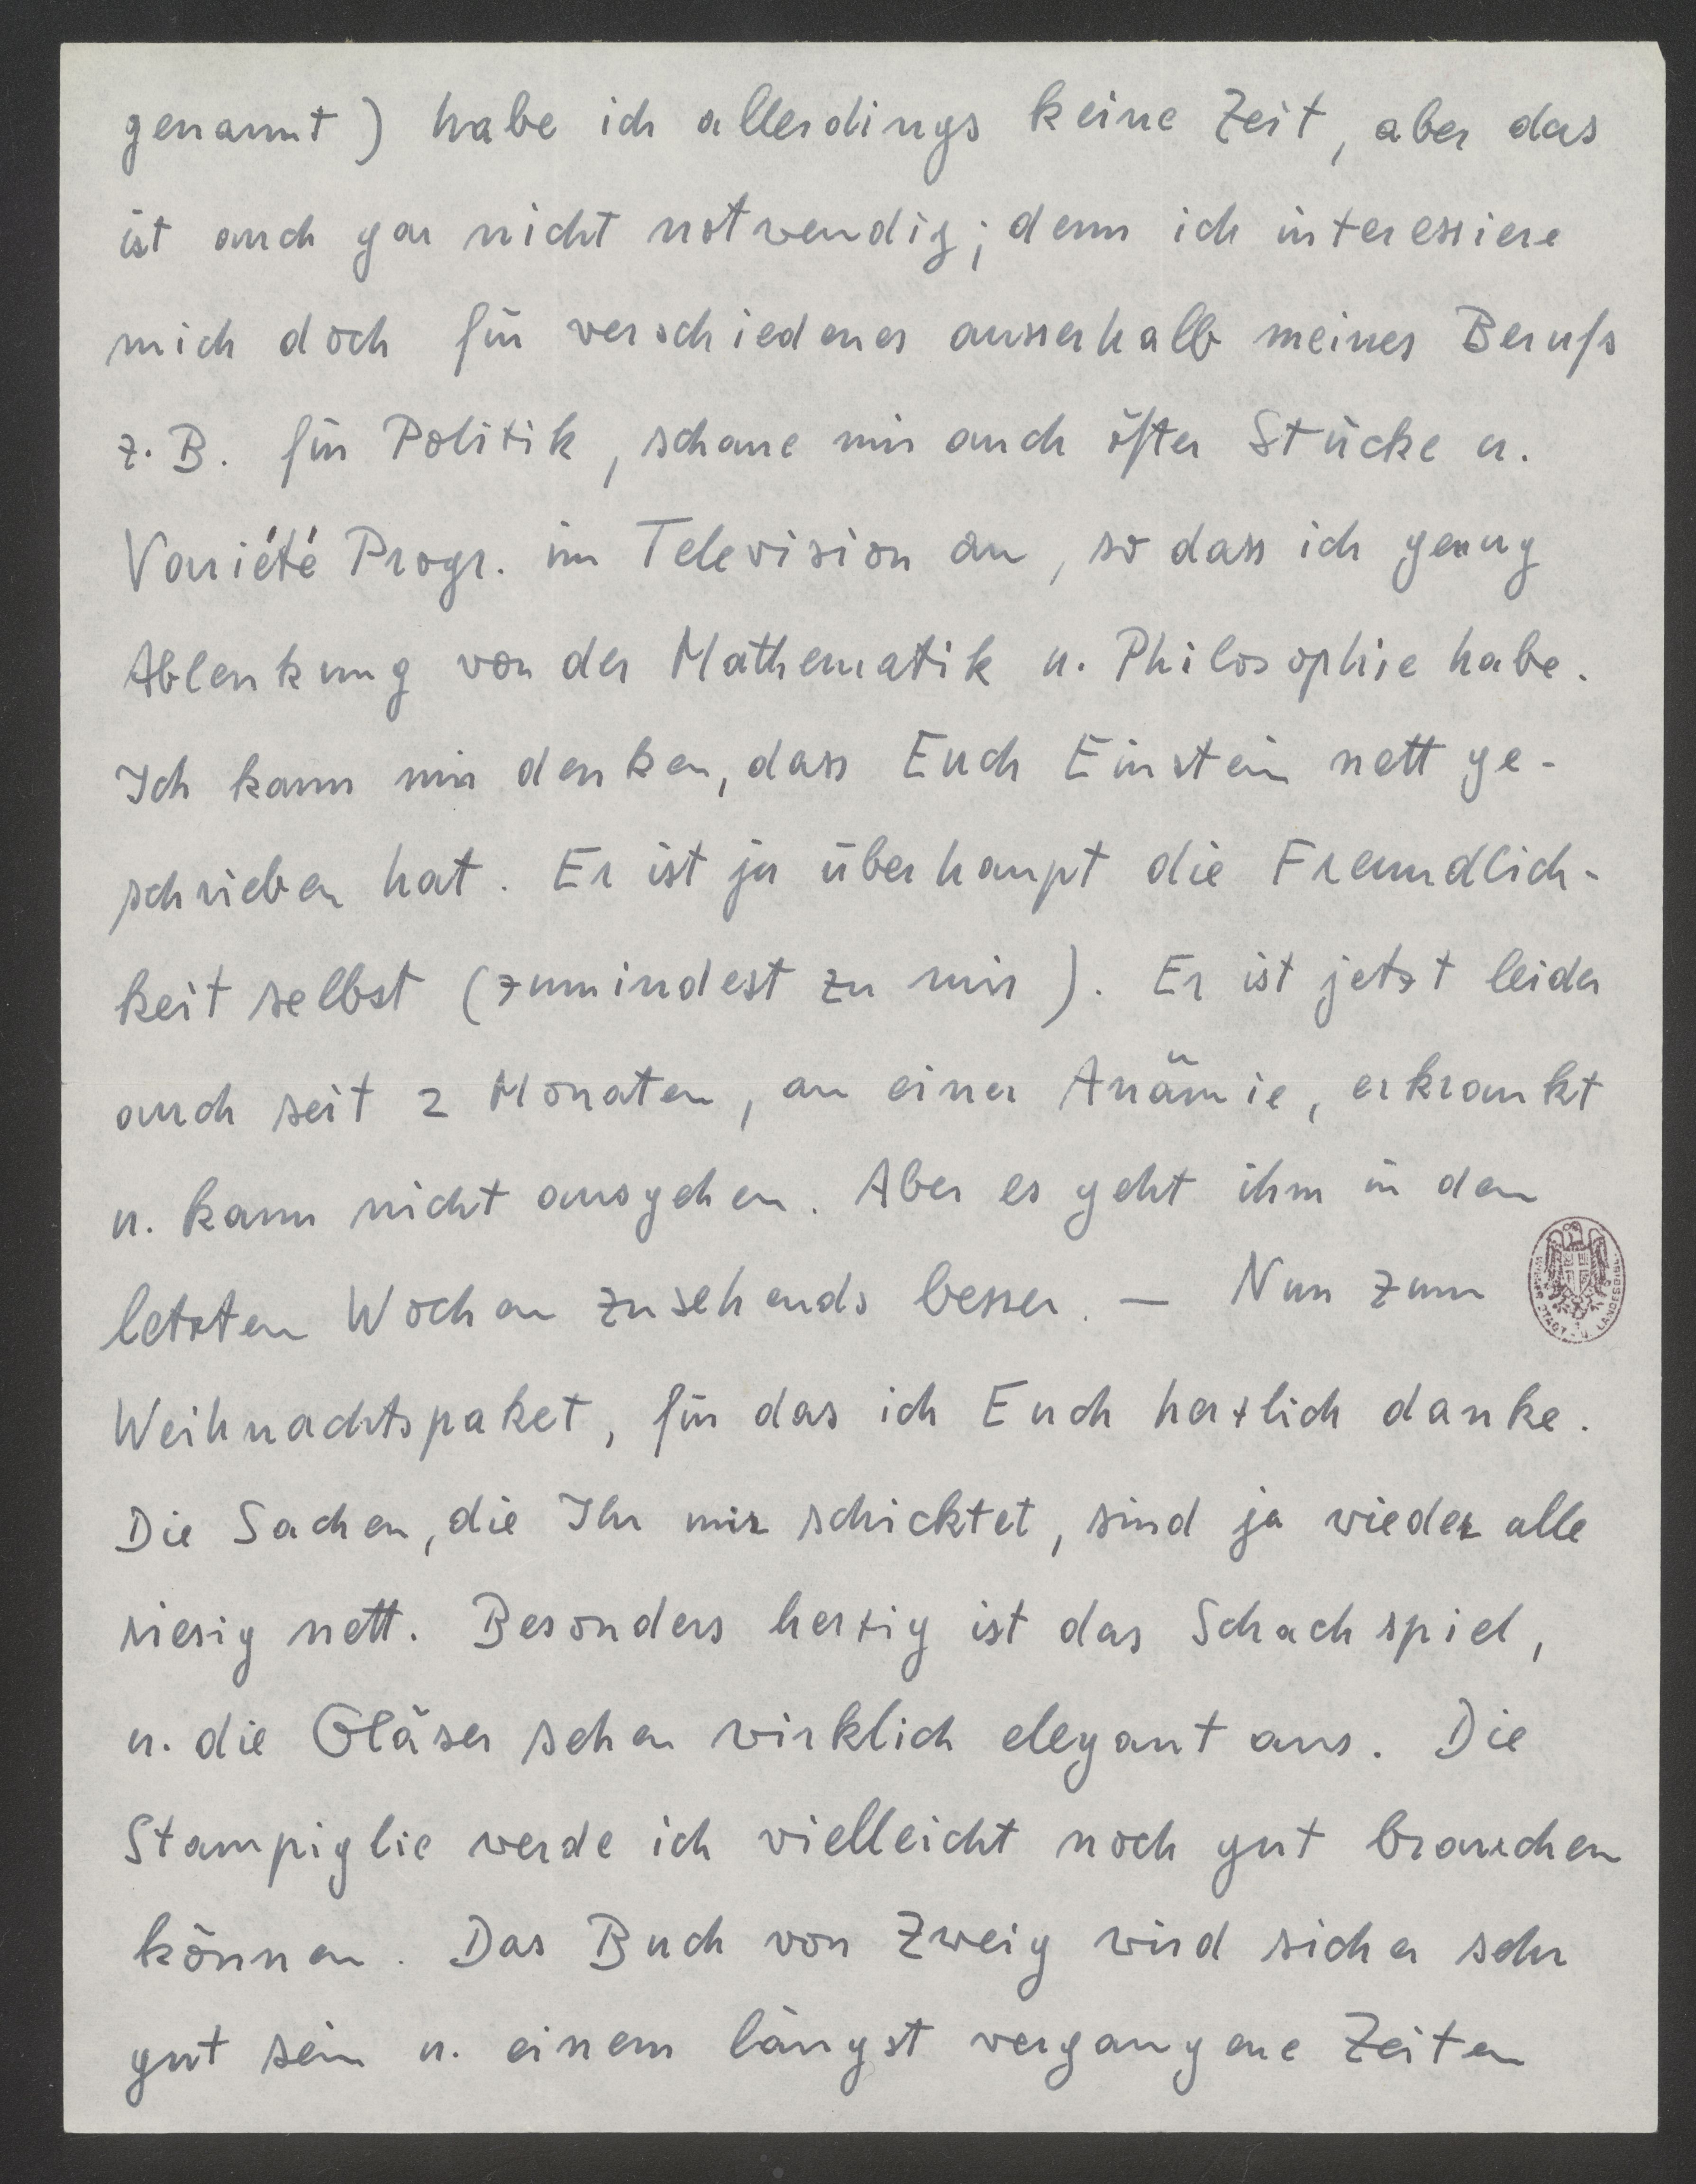 genannt) habe ich allerdings keine Zeit, aber das
ist auch gar nicht notwendig; denn ich interessiere
mich doch für verschiedenes ausserhalb meines Berufs
z. B. für Politik, schaue mir auch öfter Stücke u.
Variété Progr. im Television an, so dass ich genug
Ablenkung von der Mathematik u. Philosophie habe.
Ich kann mir denken, dass Euch Einstein nett ge-
schrieben hat. Er ist ja überhaupt die Freundlich-
keit selbst (zumindest zu mir). Er ist jetzt leider
auch seit 2 Monaten, an einer Anämie, erkrankt
u. kann nicht ausgehen. Aber es geht ihm in den
letzten Wochen zusehends besser. — Nun zum
Weihnachtspaket, für das ich Euch herzlich danke.
Die Sachen, die Ihr mir schicktet, sind ja wieder alle
riesig nett. Besonders herzig ist das Schachspiel,
u. die Gläser sehen wirklich elegant aus. Die
Stampiglie werde ich vielleicht noch gut brauchen
können. Das Buch von Zweig wird sicher sehr
gut sein u. einem längst vergangene Zeiten
STADT- U. LANDESBIBL.